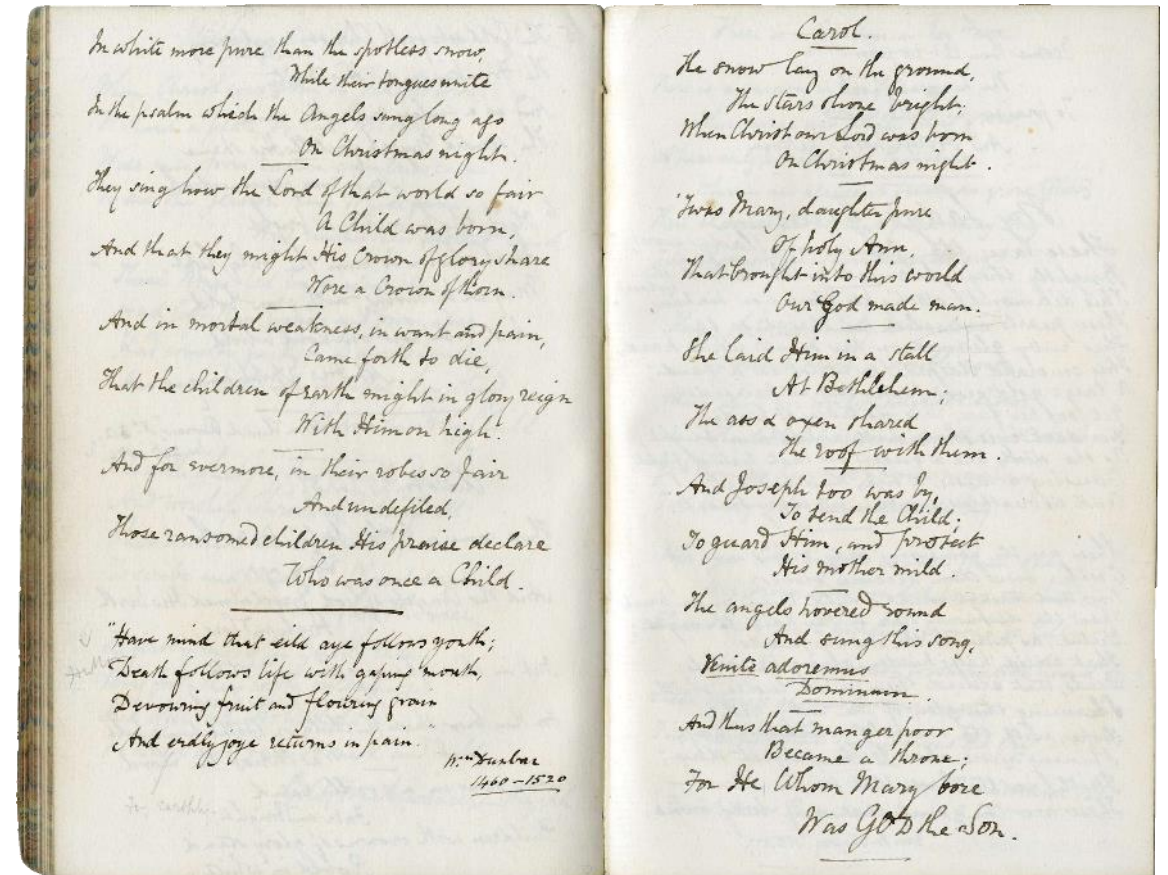 In white more pure than the spotless snow,
While their tongues unite
In the psalm which the Angels sung long ago
On Christmas night.
They sing how the Lord of that world so fair
A Child was born,
And that they might His Crown of glory share
Wore a Crown of thorn.
And in mortal weakness, in want and pain,
Came forth to die,
That the children of earth might in glory reign
With Him on high.
And for evermore, in their robes so fair
And undefiled,
Those ransomed children His praise declare
Who was once a Child.
"Have mind that eild aye follows youth;
Death follows life with gaping mouth,
Devouring fruit and flouring grain
And erdly joye returns in pain."
Wm Dunbar
1460-1520
Carol.
The snow lay on the ground,
The stars shone bright,
When Christ our Lord was born
On Christmas night.
'Twas Mary, daughter pure
Of holy Ann,
That brought into this world
Our God made man.
She laid Him in a stall
At Bethlehem;
The ass & oxen shared
The roof with them.
And Joseph too was by,
To tend the Child;
To guard Him, and protect
His mother mild.
The angels hovered round
And sung this song,
Venite adoremus
Dominum.
And thus that manger poor
Became a throne;
For He Whom Mary bore
Was GOD the Son.